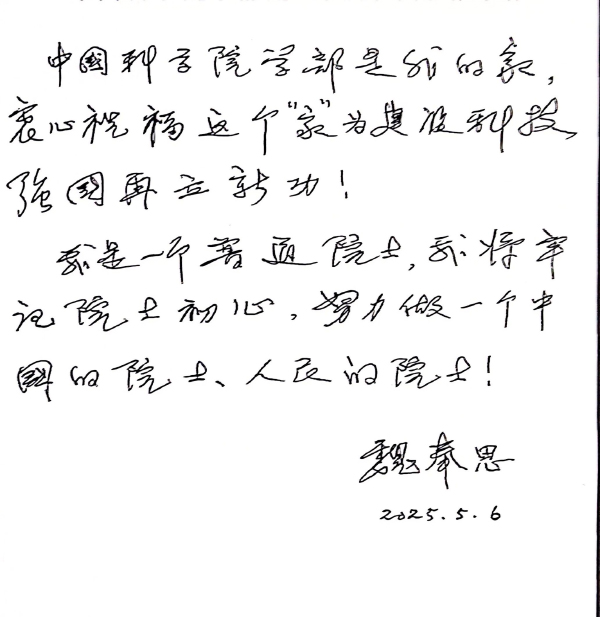 中国科学院学部是我的家，
衷心祝福这个“家”为建设科技
强国再立新功！
我是一个普通院士，我将牢
记院士初心，努力做一个中
国的院士、人民的院士！
魏奉思
2025.5.6